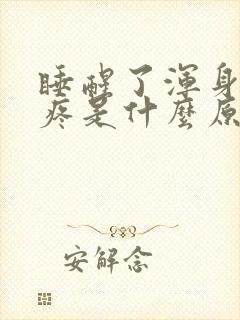 睡醒了渾身
疼是什麼原
安解念